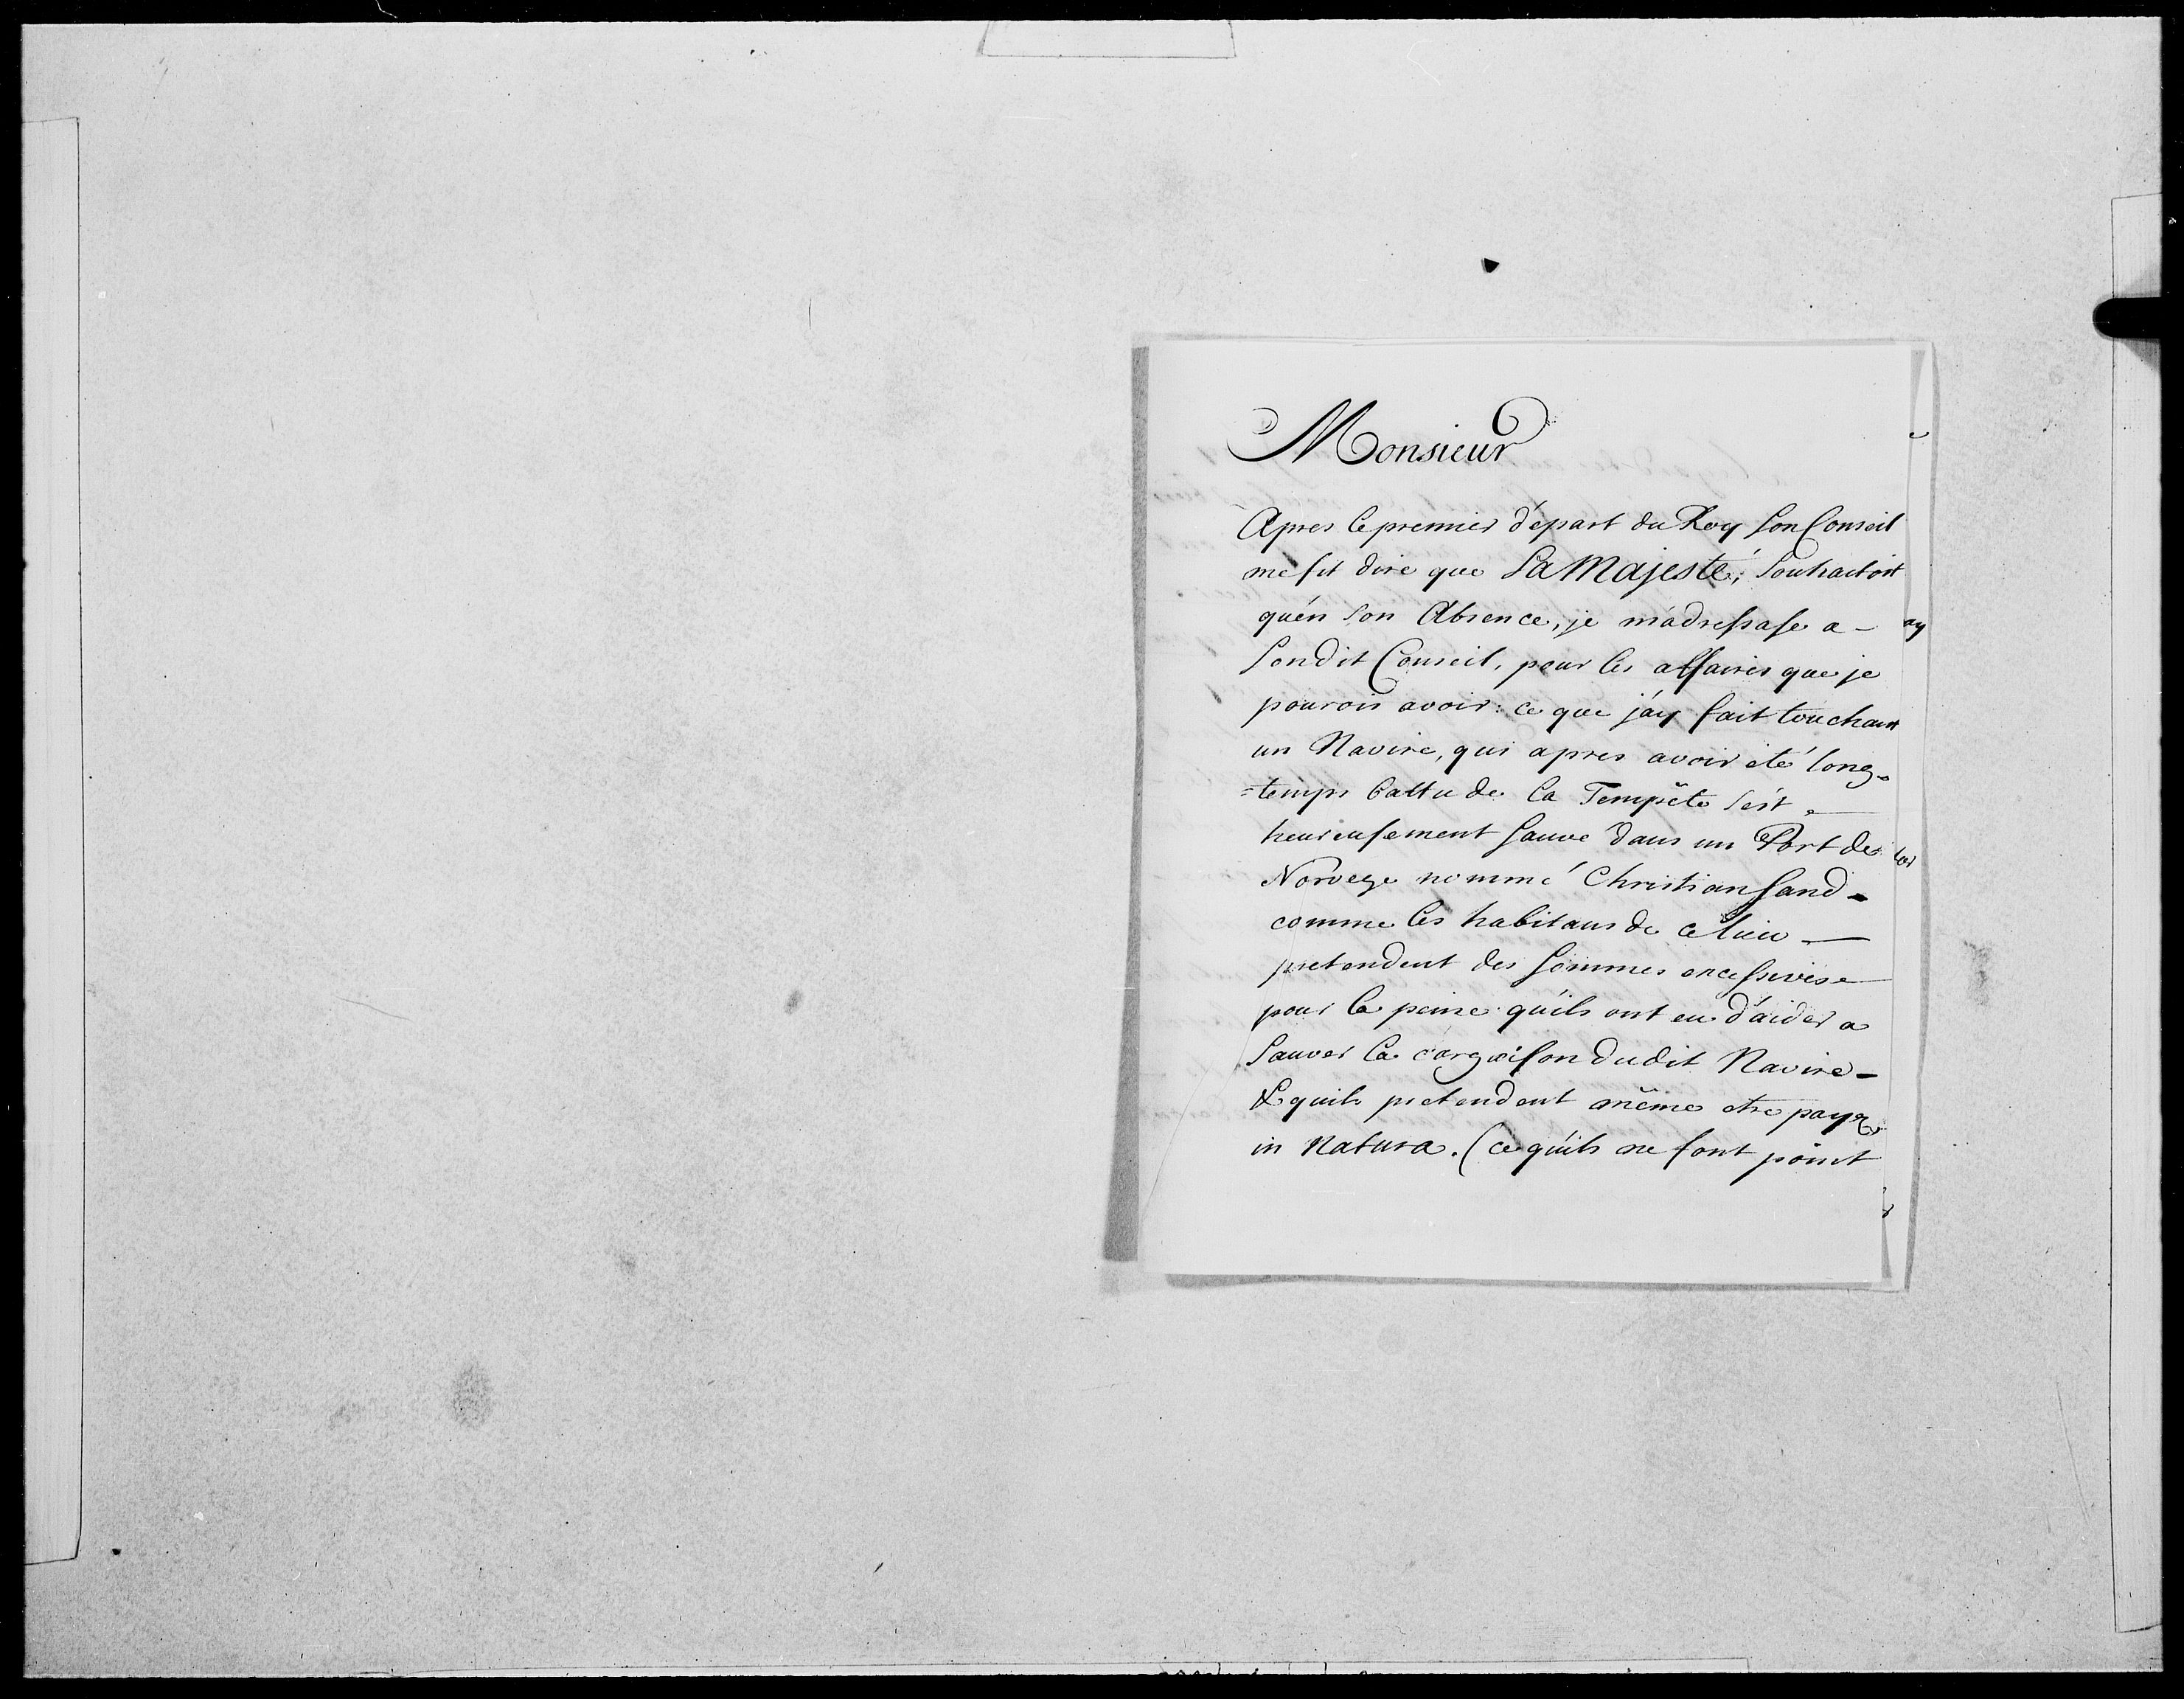 Monsieur
Apres le premier départ du Roy son Conseil
me fit dire que Sa Majesté, souhaitoit
qu'én son Absence, je m'adressasse a -
sondit Conseil, pour les affaires que je
pourois avoir: ce que j'ay fait touchant
un Navire, qui apres avoir eté long=
=temps battu de la Tempête s'est
heureusement sauvé dans un Port de
Norvege nommé Christiansand -
comme les habitans de ce lieu -
pretendent des sommes excessives
pour la peine qu'ils ont eu d'aider a
sauver la cargaison dudit Navire -
& quils pretendent même etre payez
in Natura. (ce qu'ils ne font point